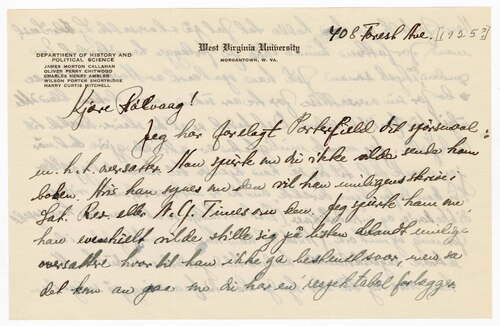 408 Forest Ave. [1925?]
West Virginia University
MORGANTOWN, W. VA.
DEPARTMENT OF HISTORY AND
POLITICAL SCIENCE
JAMES MORTON CALLAHAN
OLIVER PERRY CHITWOOD
CHARLES HENRY AMBLER
WILSON PORTER SHORTRIDGE
HARRY CURTIS MITCHELL
Kjære Rølvaag!
Jeg har forelagt Porterfield dit spörsmaal
m. h. t. oversætter. Han spurte om du ikke vilde sende ham
boken. Hvis han synes om den vil han muligens skrive i
Sat. Rev. eller N.Y. Times om den. Jeg spurte ham om
han eventuelt vilde stille sig på listen blandt mulige
oversættere hvortil han ikke ga bestemt svar, men sa
det kom an paa om du har en respektabel forlægger.